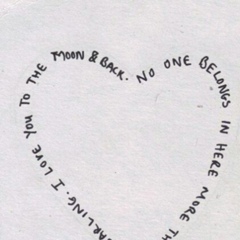 NO ONE BELONGS IN HERE MORE TH
ARLING. I LOVE YOU TO THE MOON & BACK.